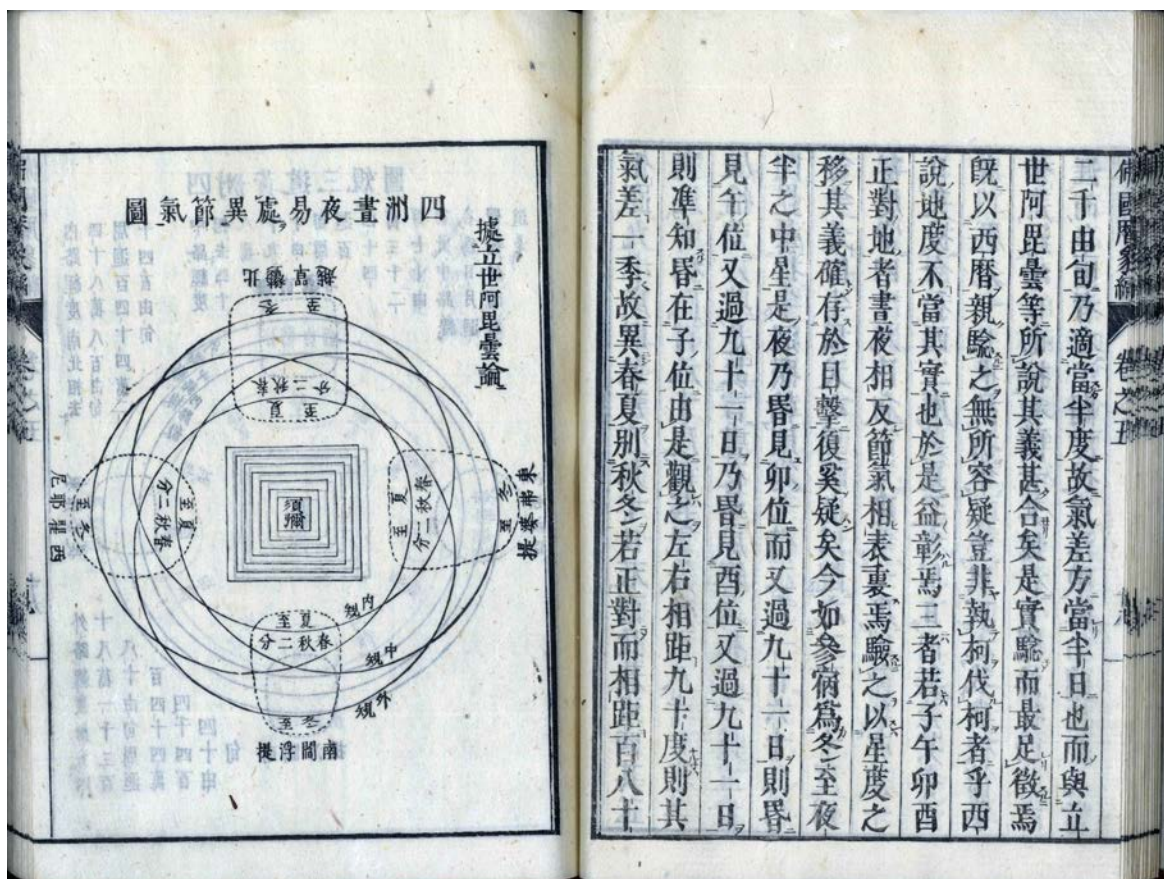 佛國曆象編 卷之五
二千由旬乃適當半度故氣差方當半日也而與立
世阿毘曇等所說其義甚合矣是實驗而最足徵焉
旣以西曆親驗之無所容疑豈非執柯伐柯者乎西
說地度不當其實也於是益彰焉三者若子午卯酉
正對地者晝夜相反節氣相表裏焉驗之以星度之
移其義確存於目擊復奚疑矣今如參宿爲冬至夜
半之中星是夜乃昏見卯位而又過九十一日則昏
見午位又過九十一日乃昏見酉位又過九十一日
則準知昏在子位由是觀之左右相距九十度則其
氣差一季故異春夏別秋冬若正對而相距百八十
四洲晝夜易處異節氣圖
據立世阿毘曇論
北鬱單越
冬至
春秋二分
夏至
東弗婆提
冬至
春秋二分
夏至
須彌
夏至
春秋二分
冬至
西瞿耶尼
內規
夏至
春秋二分
中規
外規
冬至
南閻浮提